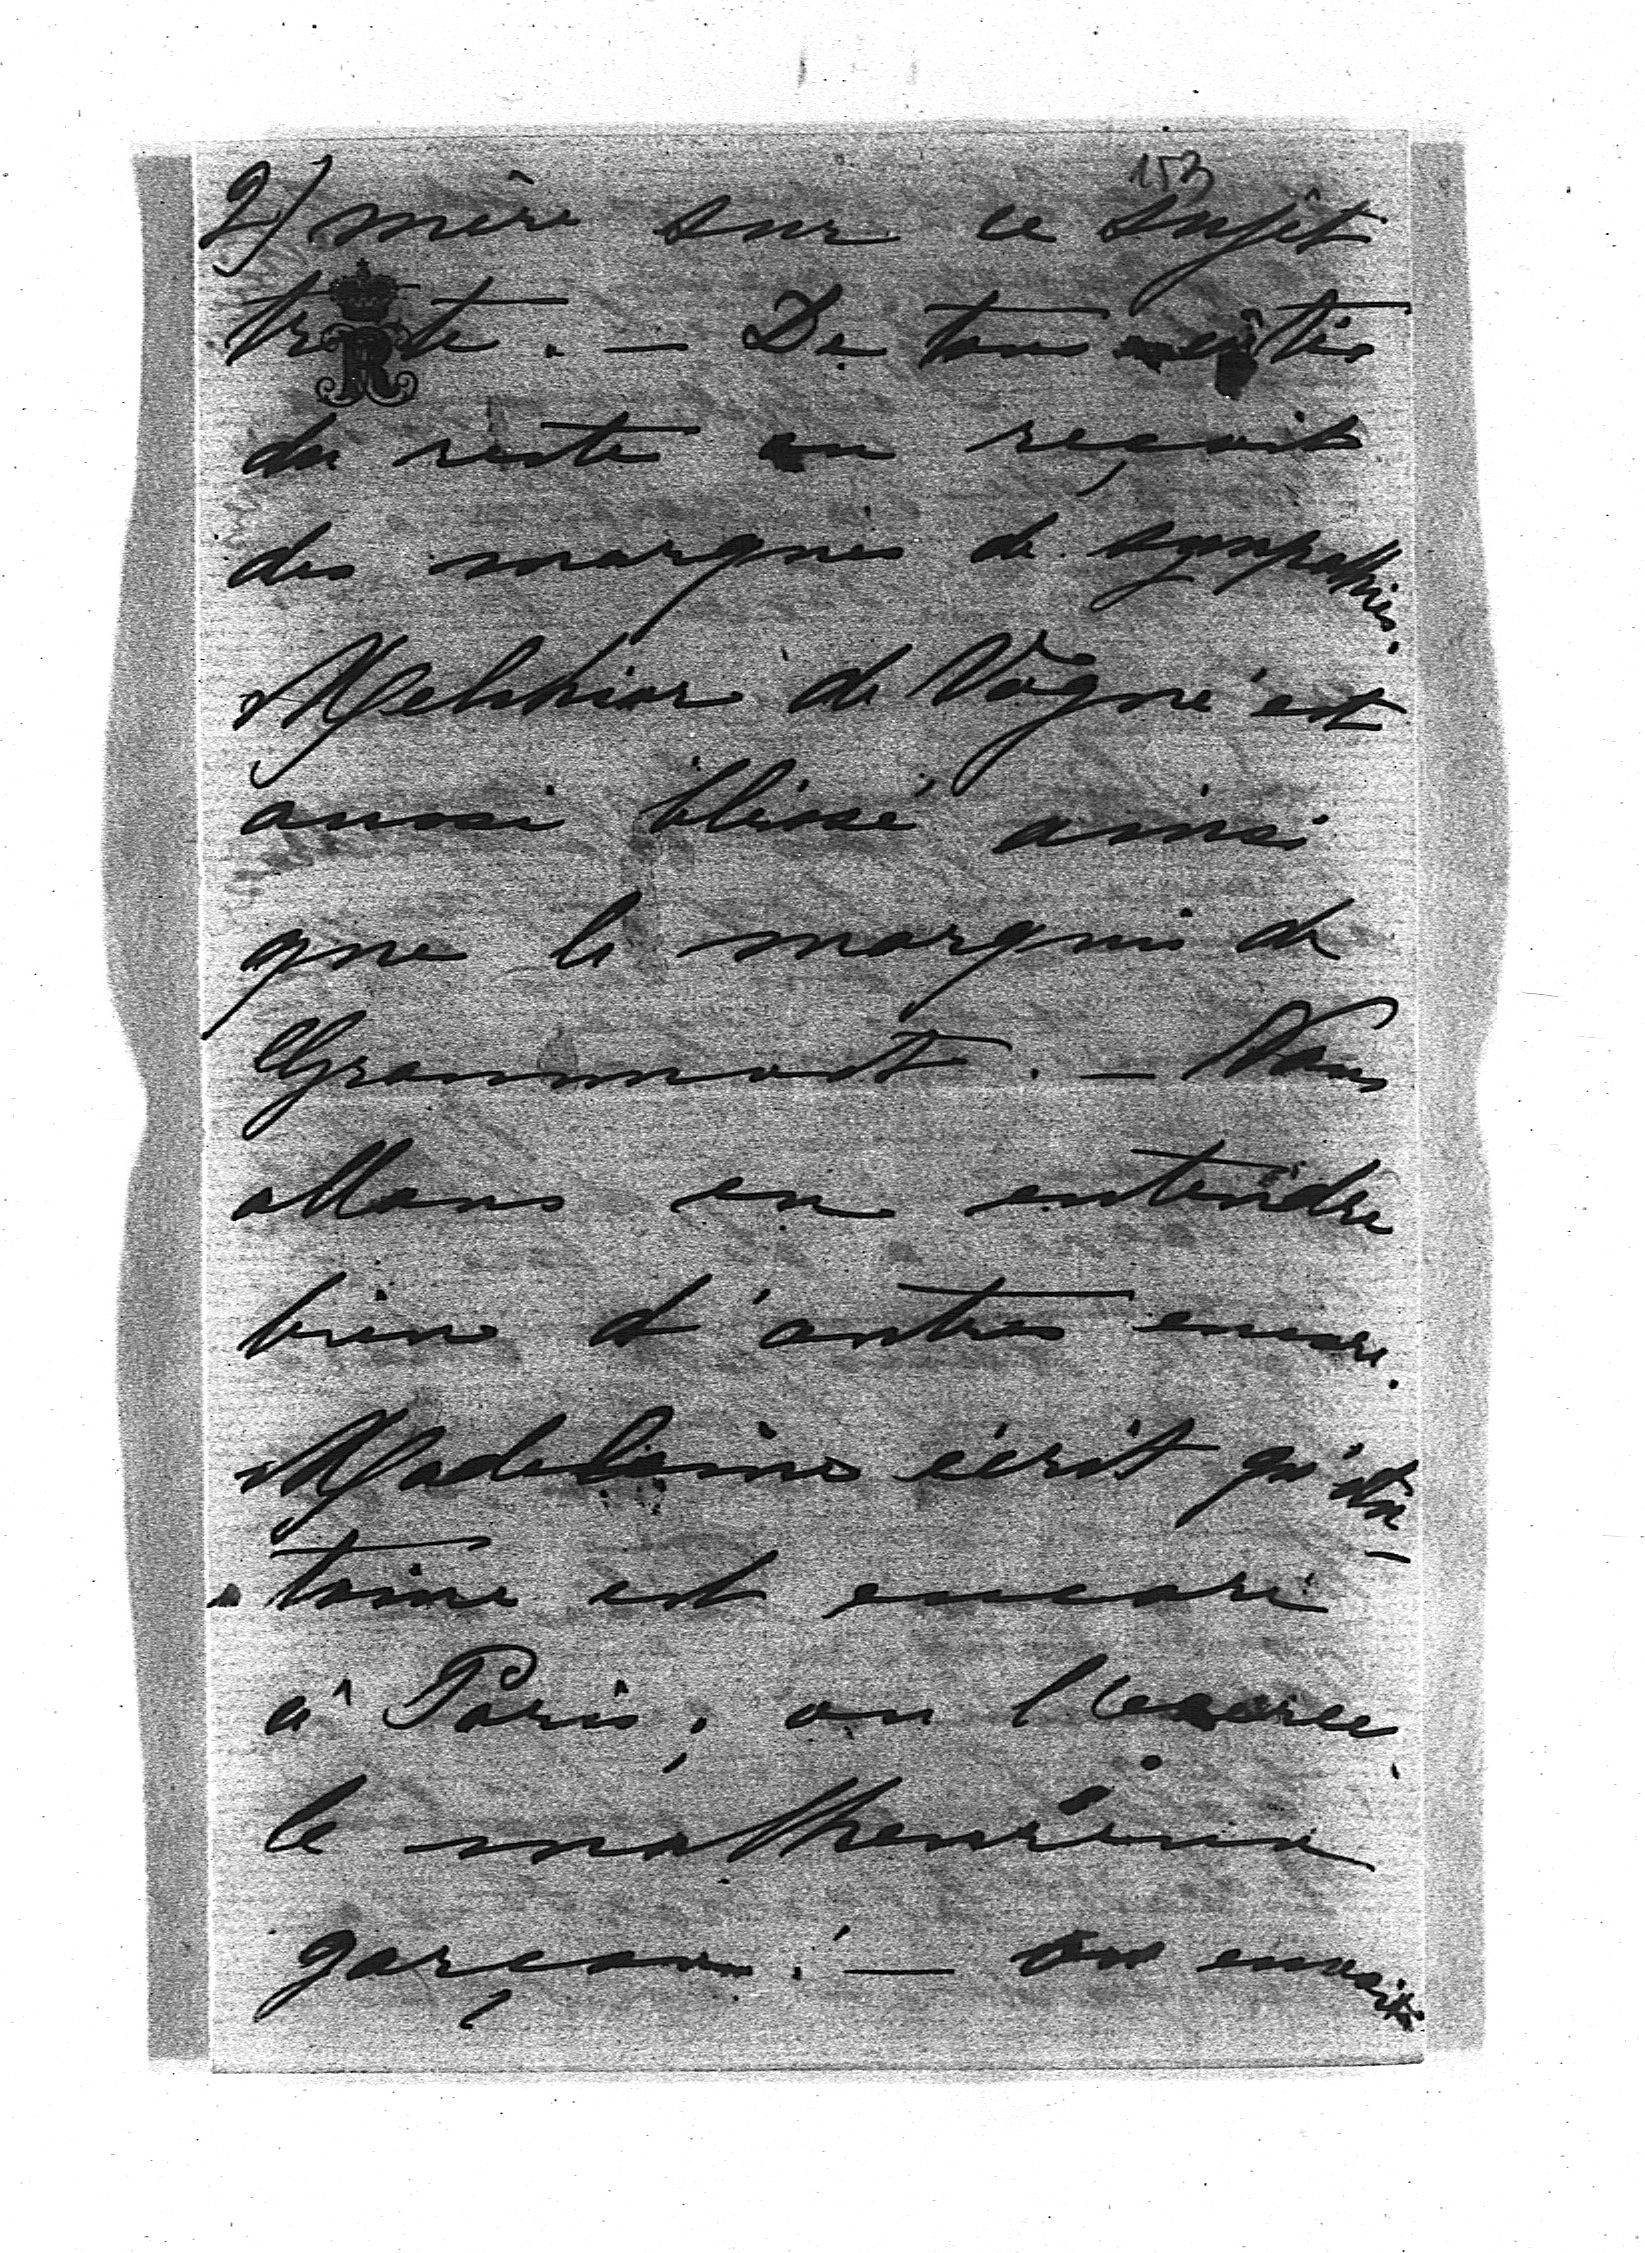 153
2) mère sur ce sujet
triste. — De tous côtés
du reste on reçoit
des marques de sympathies.
Melchior de Vogüé est
aussi blessé ainsi
que le marquis de
Grammont. — Nous
allons en entendre
bien d'autres encore.
Madeleine écrit qu'An-
toine est encore
à Paris; on l'exerce
le malheureux
garçon! — on envoit